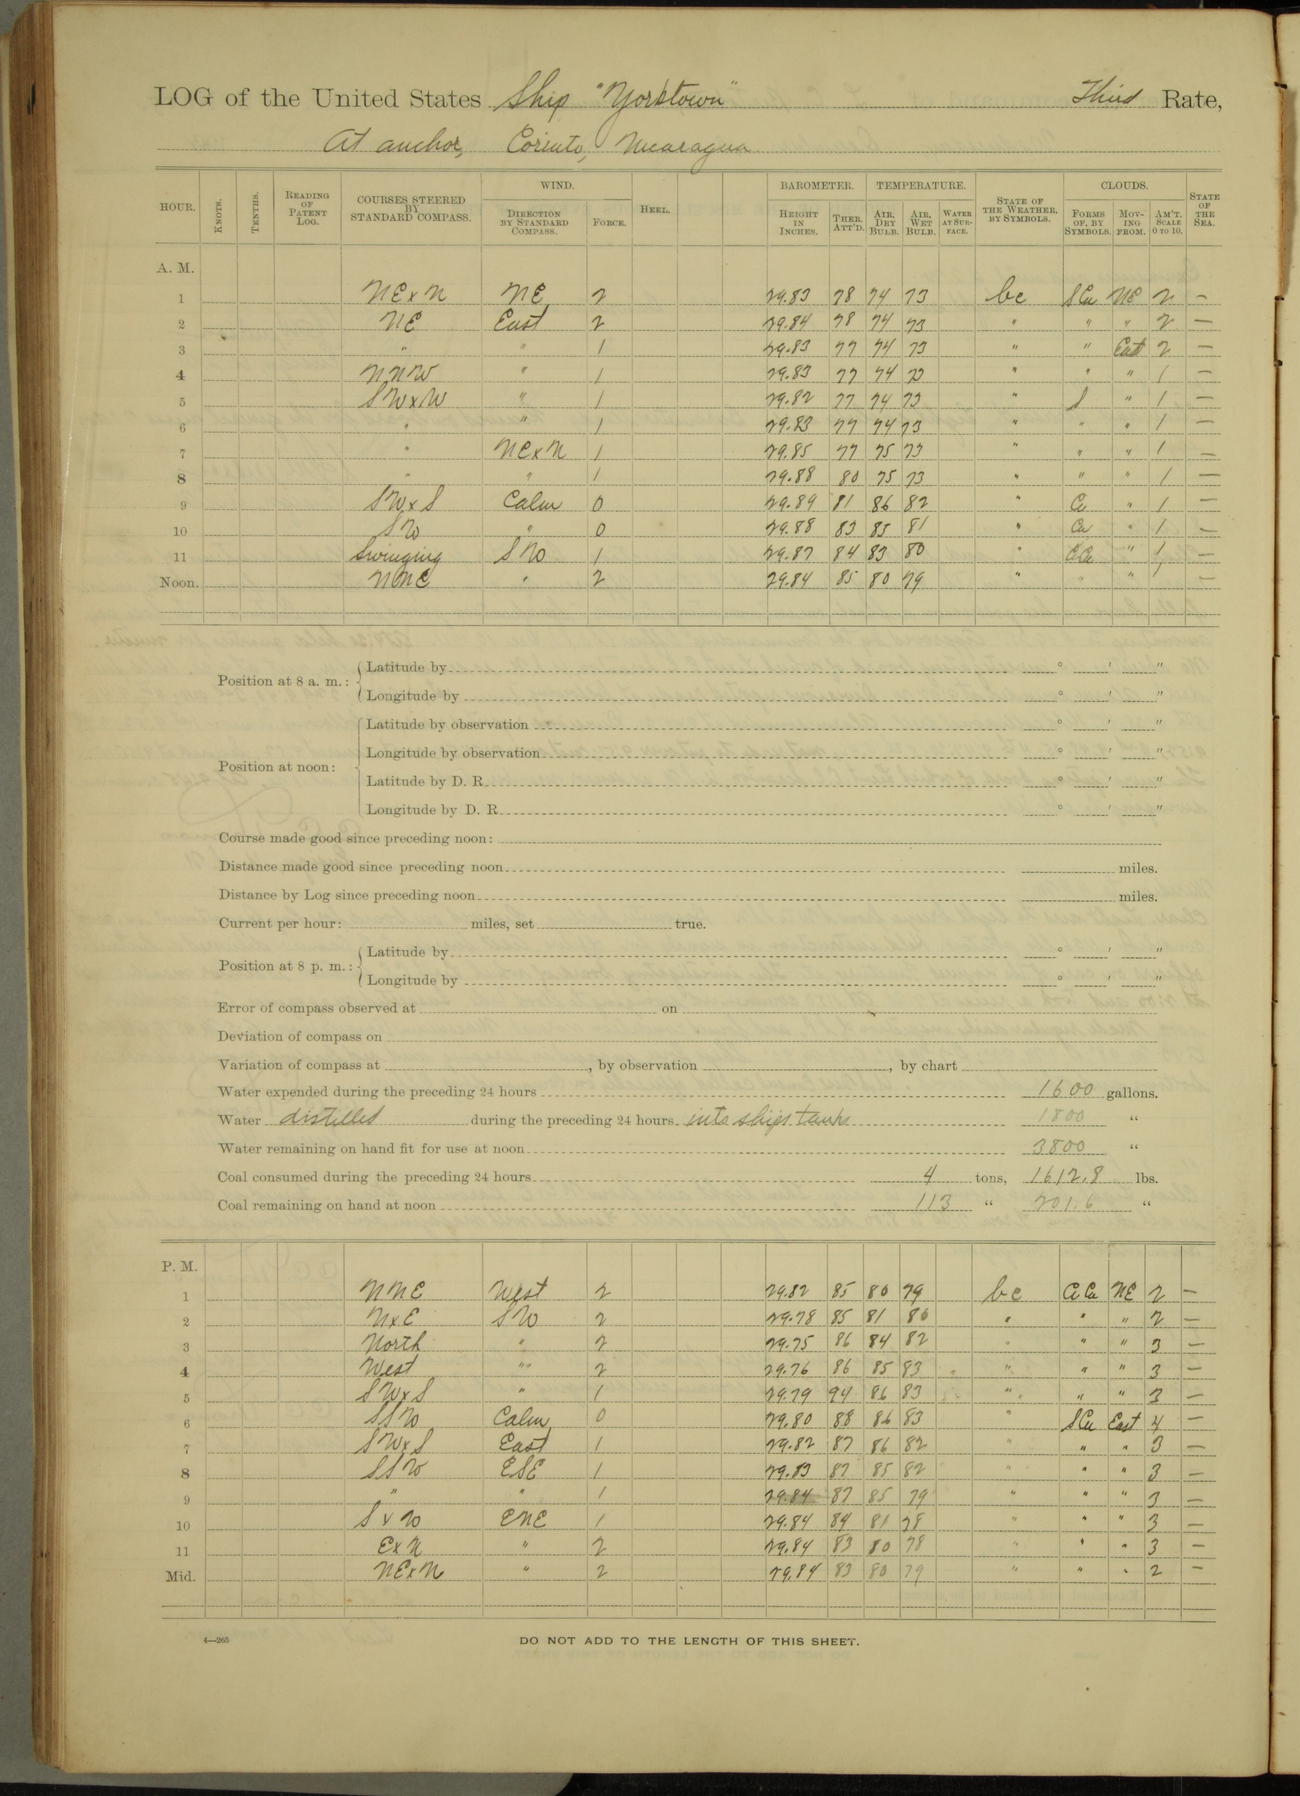 LOG of the United States Ship "Yorktown" Third Rate,
At anchor, Corinto, Nicaragua
HOUR. KNOTS. TENTHS. READING OF PATENT LOG. COURSES STEERED BY STANDARD COMPASS. WIND. DIRECTION BY STANDARD COMPASS. FORCE. HEEL. BAROMETER. HEIGHT IN INCHES. THER. ATT'D. TEMPERATURE. AIR, DRY BULB. AIR, WET BULB. WATER AT SURFACE. STATE OF THE WEATHER, BY SYMBOLS. CLOUDS. FORMS OF, BY SYMBOLS. MOVING FROM. AM'T. SCALE 0 TO 10. STATE OF THE SEA.
A. M.
1 NExN NE 2 29.83 78 74 73 bc SCu NE 2 —
2 NE East 2 29.84 78 74 73 " " " 2 —
3 " " 1 29.83 77 74 73 " " East 2 —
4 NNW " 1 29.83 77 74 73 " " " 1 —
5 SWxW " 1 29.82 77 74 73 " S " 1 —
6 " " 1 29.83 77 74 73 " " " 1 —
7 " NExN 1 29.85 77 75 73 " " " 1 —
8 " " 1 29.88 80 75 73 " " " 1 —
9 SWxS Calm 0 29.89 81 86 82 " Cu " 1 —
10 SW " 0 29.88 83 85 81 " Cu " 1 —
11 Swinging SW 1 29.87 84 83 80 " CCu " 1 —
Noon. NNE " 2 29.84 85 80 79 " " " 1 —
Position at 8 a. m.: Latitude by ° ' "
Longitude by ° ' "
Position at noon: Latitude by observation ° ' "
Longitude by observation ° ' "
Latitude by D. R. ° ' "
Longitude by D. R. ° ' "
Course made good since preceding noon:
Distance made good since preceding noon miles.
Distance by Log since preceding noon miles.
Current per hour: miles, set true.
Position at 8 p. m.: Latitude by ° ' "
Longitude by ° ' "
Error of compass observed at on
Deviation of compass on
Variation of compass at , by observation , by chart
Water expended during the preceding 24 hours 1600 gallons.
Water distilled during the preceding 24 hours into ships tanks 1800 "
Water remaining on hand fit for use at noon 3800 "
Coal consumed during the preceding 24 hours 4 tons, 1612.8 lbs.
Coal remaining on hand at noon 113 " 201.6 "
P. M.
1 NNE West 2 29.82 85 80 79 bc CiCu NE 2 —
2 NxE SW 2 29.78 85 81 80 " " " 2 —
3 North " 2 29.75 86 84 82 " " " 3 —
4 West " 2 29.76 86 85 83 " " " 3 —
5 SWxS " 1 29.79 94 86 83 " " " 3 —
6 SSW Calm 0 29.80 88 86 83 " SCu East 4 —
7 SWxS East 1 29.82 87 86 82 " " " 3 —
8 SSW ESE 1 29.83 87 85 82 " " " 3 —
9 " " 1 29.84 87 85 79 " " " 3 —
10 SxW ENE 1 29.84 84 81 78 " " " 3 —
11 ExN " 2 29.84 83 80 78 " " " 3 —
Mid. NExN " 2 29.84 83 80 79 " " " 2 —
4—265 DO NOT ADD TO THE LENGTH OF THIS SHEET.